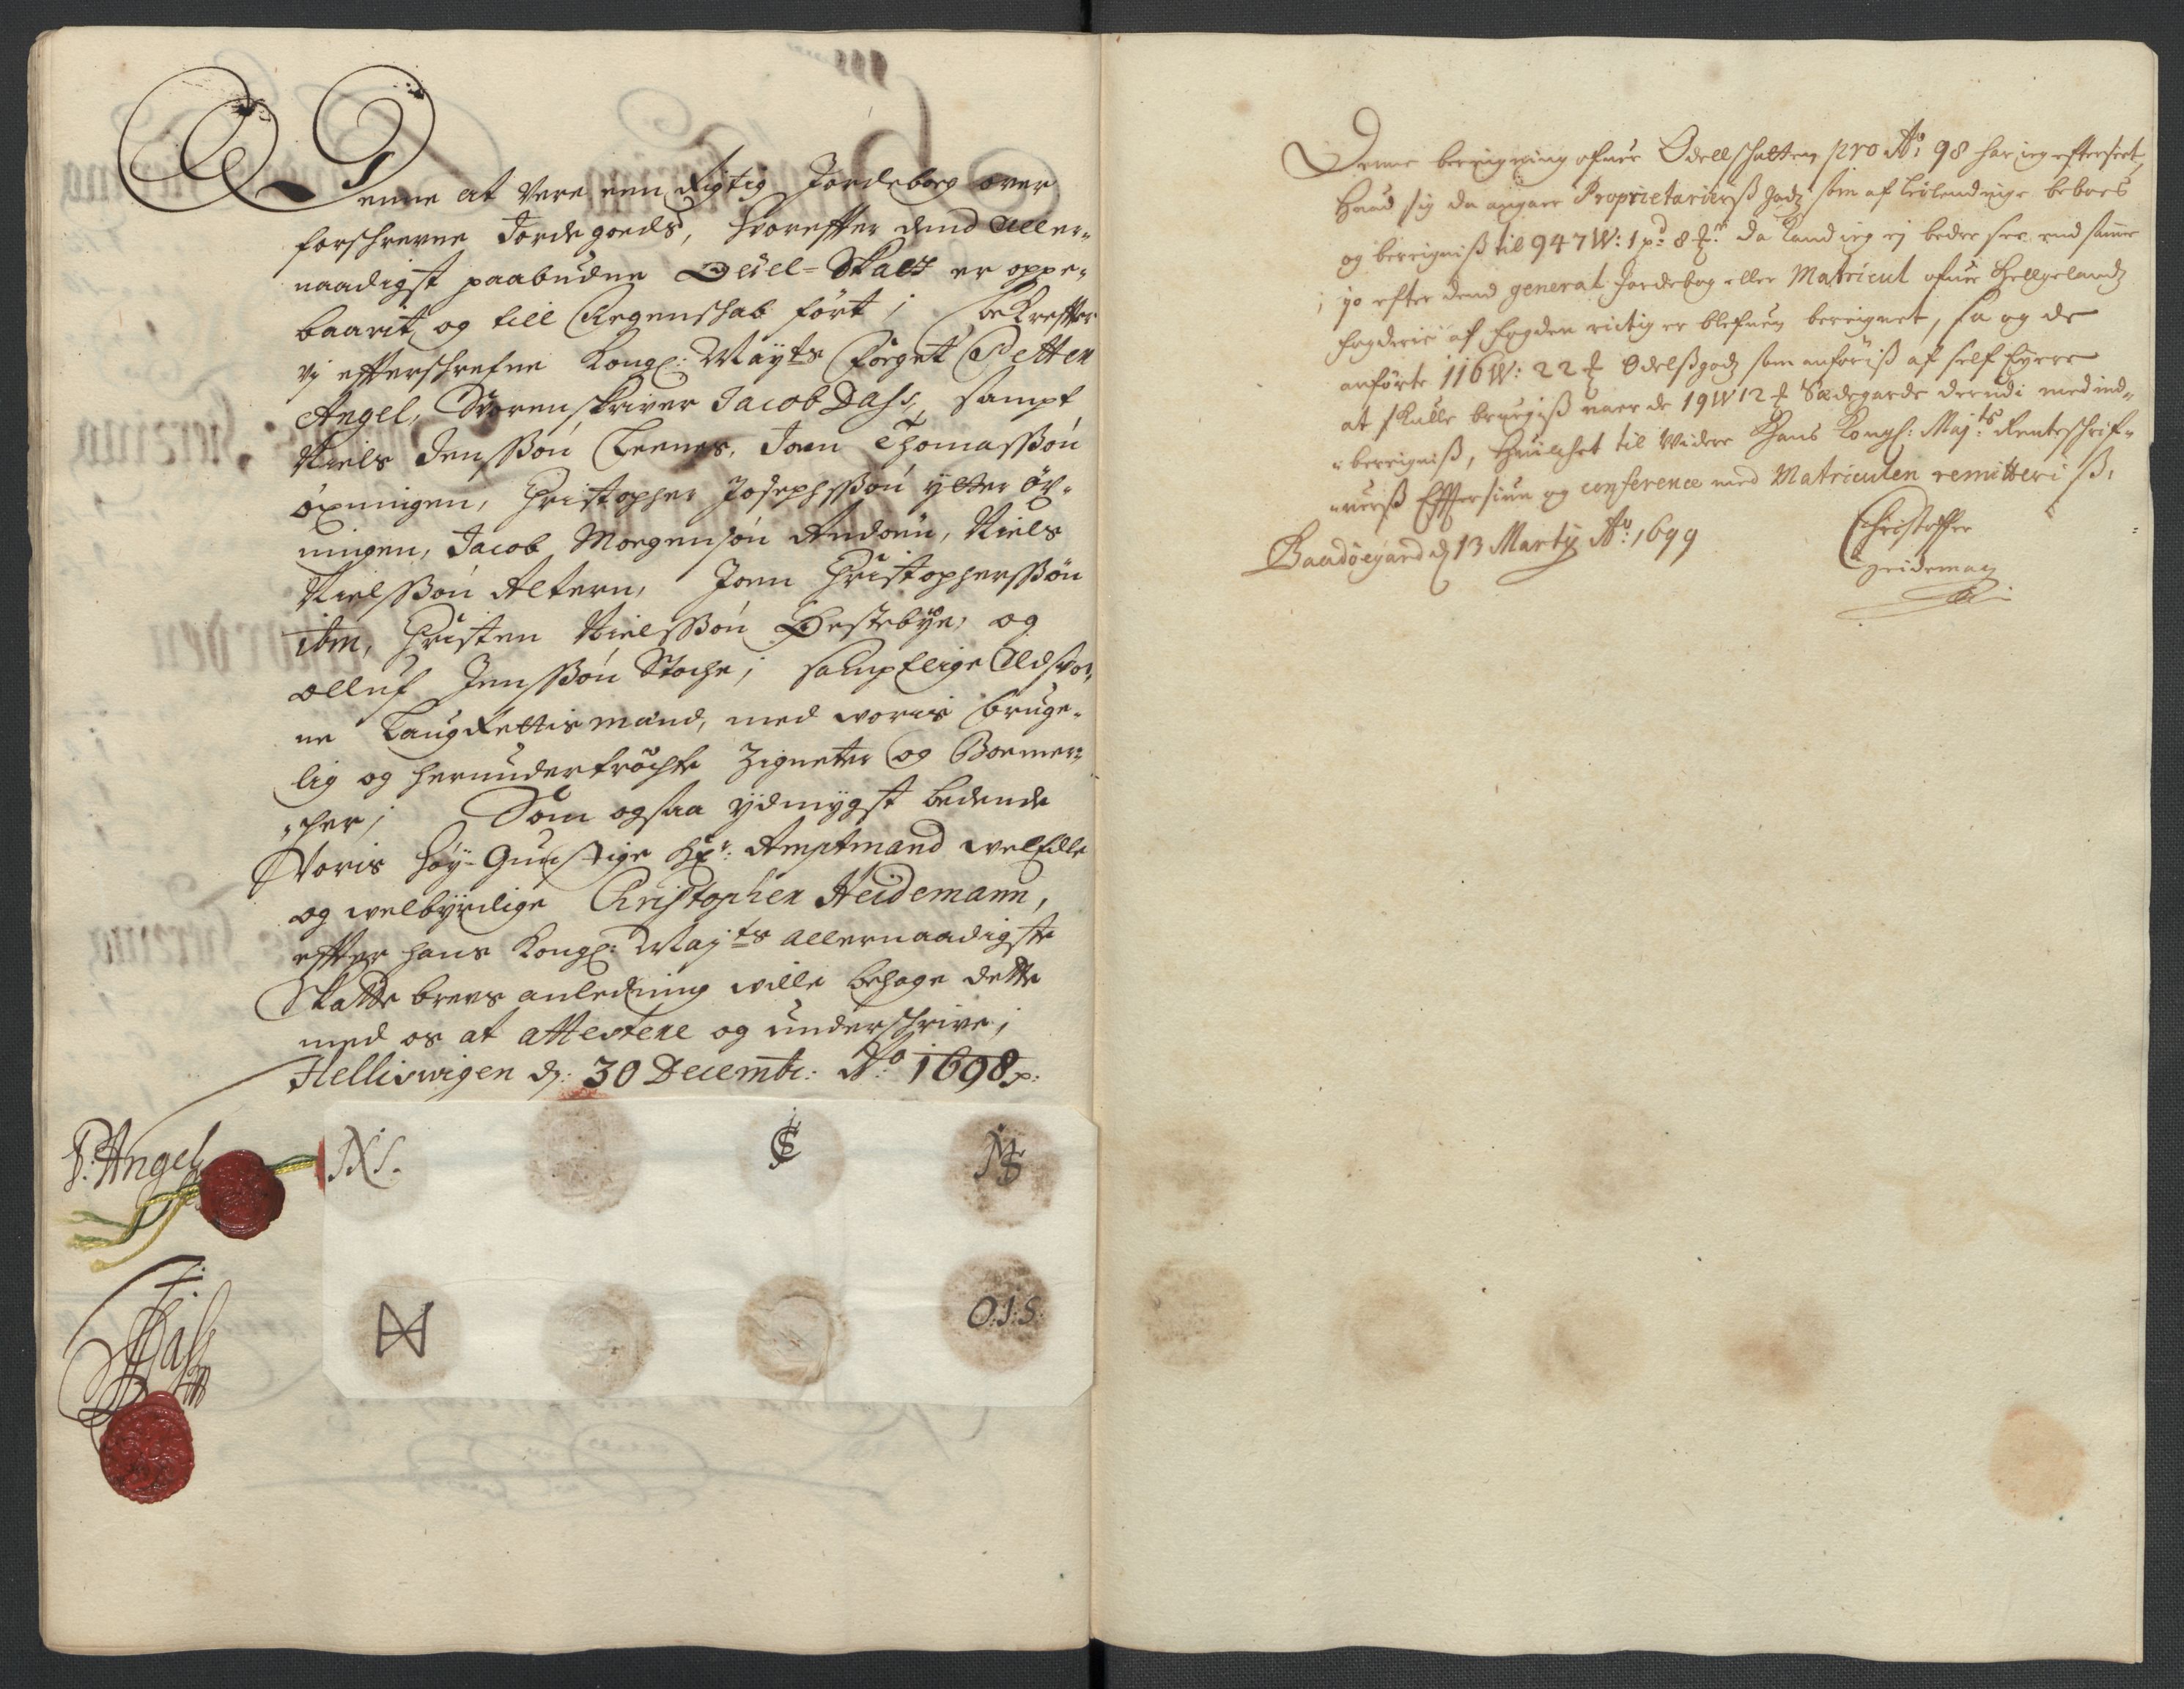 Denne at vere een Rigtig Jordeboeg over
forschrevne Jordegoeds, hvorefter dend Aller-
naadigst paabudne Odel-Skatt er oppe-
baarit og till Regenskab ført; Bekrefter
vj efterschrefne Kongl: Mayts Foeget Petter
Angel, Sorenskriver Jacob Dass, sampt
Niels Jenssøn Leenes, Joen Thomassøn
öxningen, Christopher Josephssøn ytter öx-
ningen, Jacob Mogensøn Andøen, Niels
Nielssøn Altern, Joen Christopherssøn
ibm, Christen Nielssøn Bestebye, og
Olluf Jenssøn Stoche; samptlige Edsvor,
ne Laugrettis mænd, med voris bruge-
lig og herundertröchte Zigneter og Boemer-
cher; Som ogsaa ydmygst bedende
Voris höy-Gunstige Hr: Amptmand welEdle
og welbyrdige Christopher Heidemann,
efter hans Kongl: Mayts allernaadigste
Skatte brevs anledning ville behage dette
med os at attestere og underschrive;
Hellisvigen d: 30 Decembr: Ao 1698
P: Angel
NIS.
CS
O.I.S.
J: Dass
Denne beregning ofuer Odellschatten pro Ao: 98 har ieg efterseet,
Huad sig da angaar Proprietarierss Jodz som af Leilendinge beboes
og beregniss til 947 W: 1 pd 8 da kand ieg ej bedre see end samme
jo efter dend general Jordebog eller Matricul ofuer Helgelandz
fogderie af fogden rictig er blefuen bereignet, saa og de
anførte 116 W: 22 Odelssgodz som anføriss af self Eyere
at skulle brugiss naar de 19 W 12 Sædegaarde derudi med ind-
bereigniss, Huilchet til Widere Hans Kongl: Mayts Renteschrif-
uerss Eftersiun og conference med Matriculen remitteriss,
Baadöegaard d 13 Martij Ao: 1699
Christoffer
Heideman